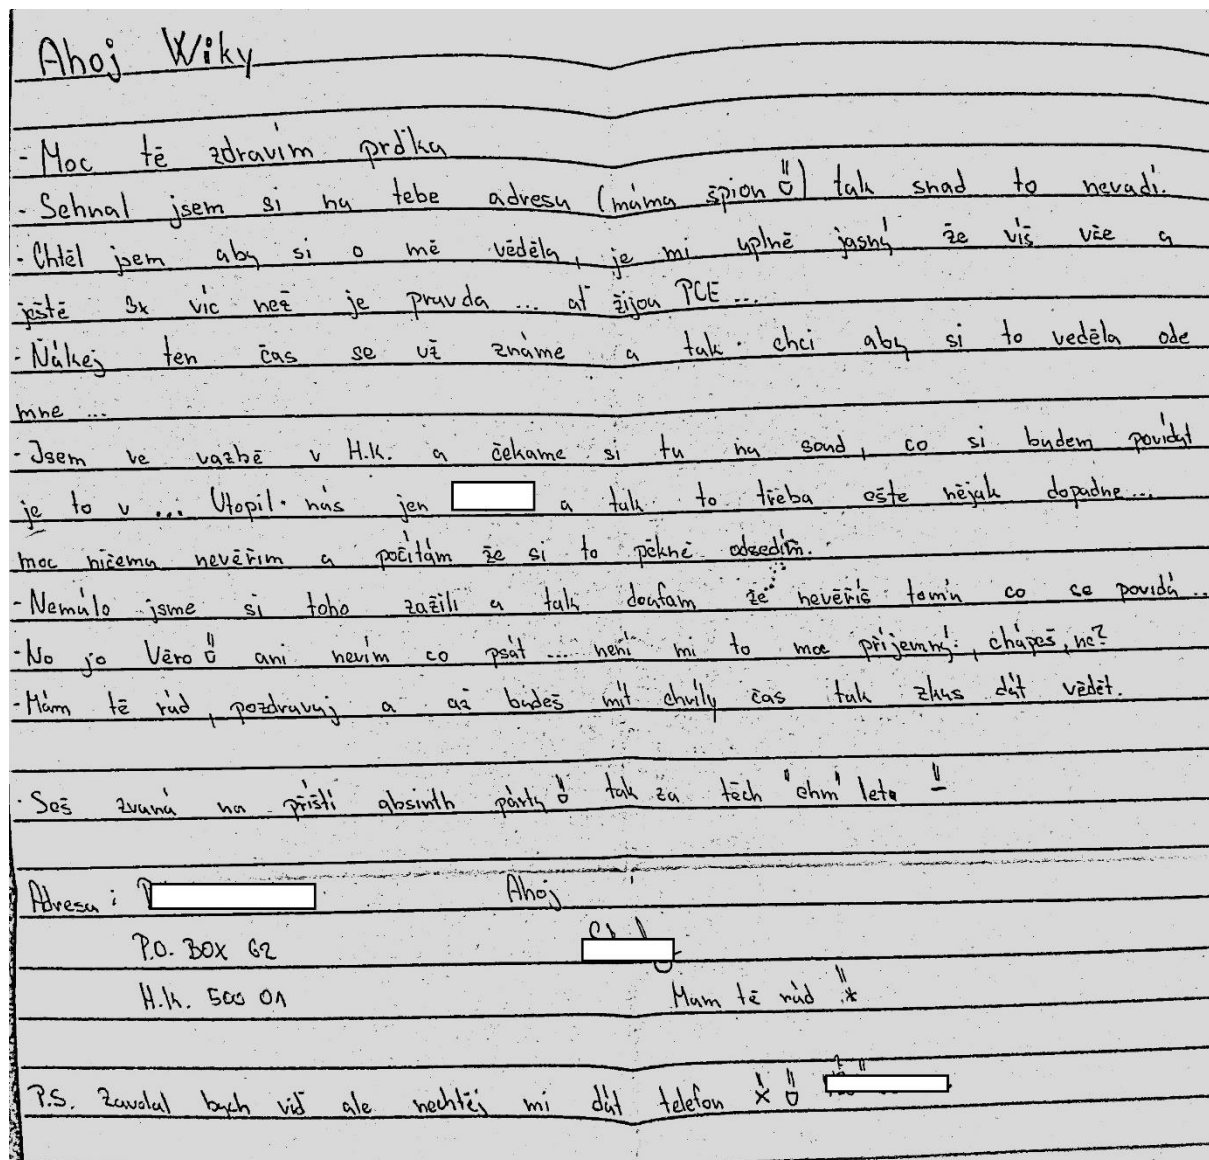 Ahoj Wiky
- Moc tě zdravím prďka
- Sehnal jsem si na tebe adresu (máma špion ) tak snad to nevadí.
- Chtěl jsem aby si o mě věděla, je mi uplně jasný že víš vše a
ještě 3x víc než je pravda ... ať žijou PCE ...
- Ňákej ten čas se už známe a tak chci aby si to veděla ode
mne ...
- Jsem ve vazbě v H.K. a čekame si tu na soud, co si budem povídat
je to v ... Utopil nás jen a tak to třeba ešte nějak dopadne...
moc ničemu nevěřim a počítám že si to pěkně odsedím.
- Nemálo jsme si toho zažili a tak doufam že nevěříš tomu co se povidá ..
- No jo Věro ani nevím co psát ... není mi to moc příjemný, chápeš, ne?
- Mám tě rád, pozdravuj a až budeš mít chvíly čas tak zkus dát vědět.
- Seš zvaná na příští absinth párty tak za těch "ehm" leta
Adresa: Ahoj
P.O. BOX 62
H.K. 500 01 Mam tě rád
P.S. Zavolal bych viď ale nechtěj mi dát telefon